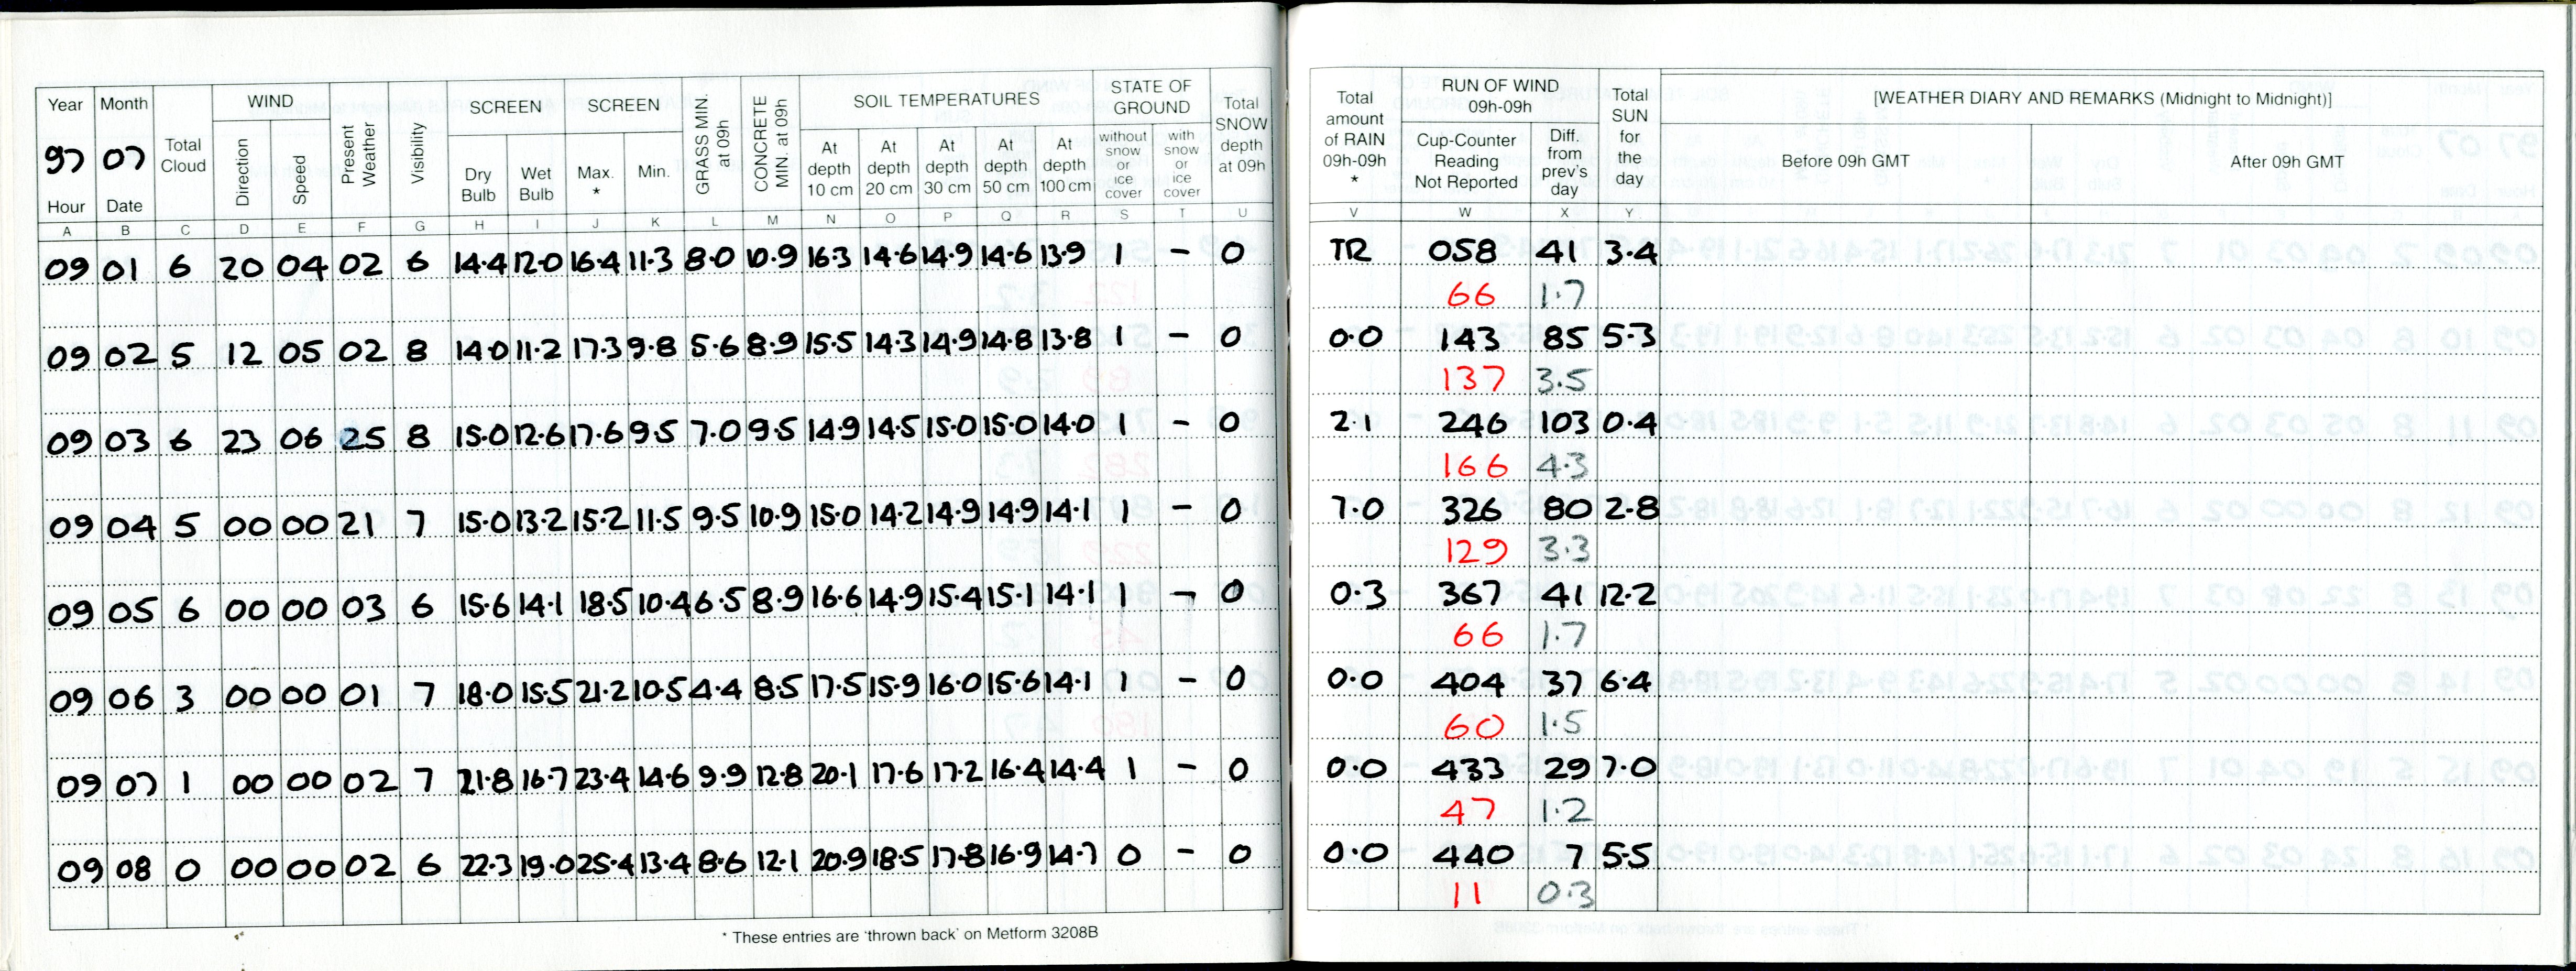 Year Month Total Cloud WIND Present Weather Visibility SCREEN SCREEN GRASS MIN. at 09h CONCRETE MIN. at 09h SOIL TEMPERATURES STATE OF GROUND Total SNOW depth at 09h
97 07 Direction Speed Dry Bulb Wet Bulb Max. * Min. At depth 10 cm At depth 20 cm At depth 30 cm At depth 50 cm At depth 100 cm without snow or ice cover with snow or ice cover
Hour Date
A B C D E F G H I J K L M N O P Q R S T U
09 01 6 20 04 02 6 14.4 12.0 16.4 11.3 8.0 10.9 16.3 14.6 14.9 14.6 13.9 1 - 0
09 02 5 12 05 02 8 14.0 11.2 17.3 9.8 5.6 8.9 15.5 14.3 14.9 14.8 13.8 1 - 0
09 03 6 23 06 25 8 15.0 12.6 17.6 9.5 7.0 9.5 14.9 14.5 15.0 15.0 14.0 1 - 0
09 04 5 00 00 21 7 15.0 13.2 15.2 11.5 9.5 10.9 15.0 14.2 14.9 14.9 14.1 1 - 0
09 05 6 00 00 03 6 15.6 14.1 18.5 10.4 6.5 8.9 16.6 14.9 15.4 15.1 14.1 1 - 0
09 06 3 00 00 01 7 18.0 15.5 21.2 10.5 4.4 8.5 17.5 15.9 16.0 15.6 14.1 1 - 0
09 07 1 00 00 02 7 21.8 16.7 23.4 14.6 9.9 12.8 20.1 17.6 17.2 16.4 14.4 1 - 0
09 08 0 00 00 02 6 22.3 19.0 25.4 13.4 8.6 12.1 20.9 18.5 17.8 16.9 14.7 0 - 0
* These entries are 'thrown back' on Metform 3208B
Total amount of RAIN 09h-09h * RUN OF WIND 09h-09h Total SUN for the day [WEATHER DIARY AND REMARKS (Midnight to Midnight)]
Cup-Counter Reading Not Reported Diff. from prev's day Before 09h GMT After 09h GMT
V W X Y
TR 058 41 3.4
66 1.7
0.0 143 85 5.3
137 3.5
2.1 246 103 0.4
166 4.3
7.0 326 80 2.8
129 3.3
0.3 367 41 12.2
66 1.7
0.0 404 37 6.4
60 1.5
0.0 433 29 7.0
47 1.2
0.0 440 7 5.5
11 0.3